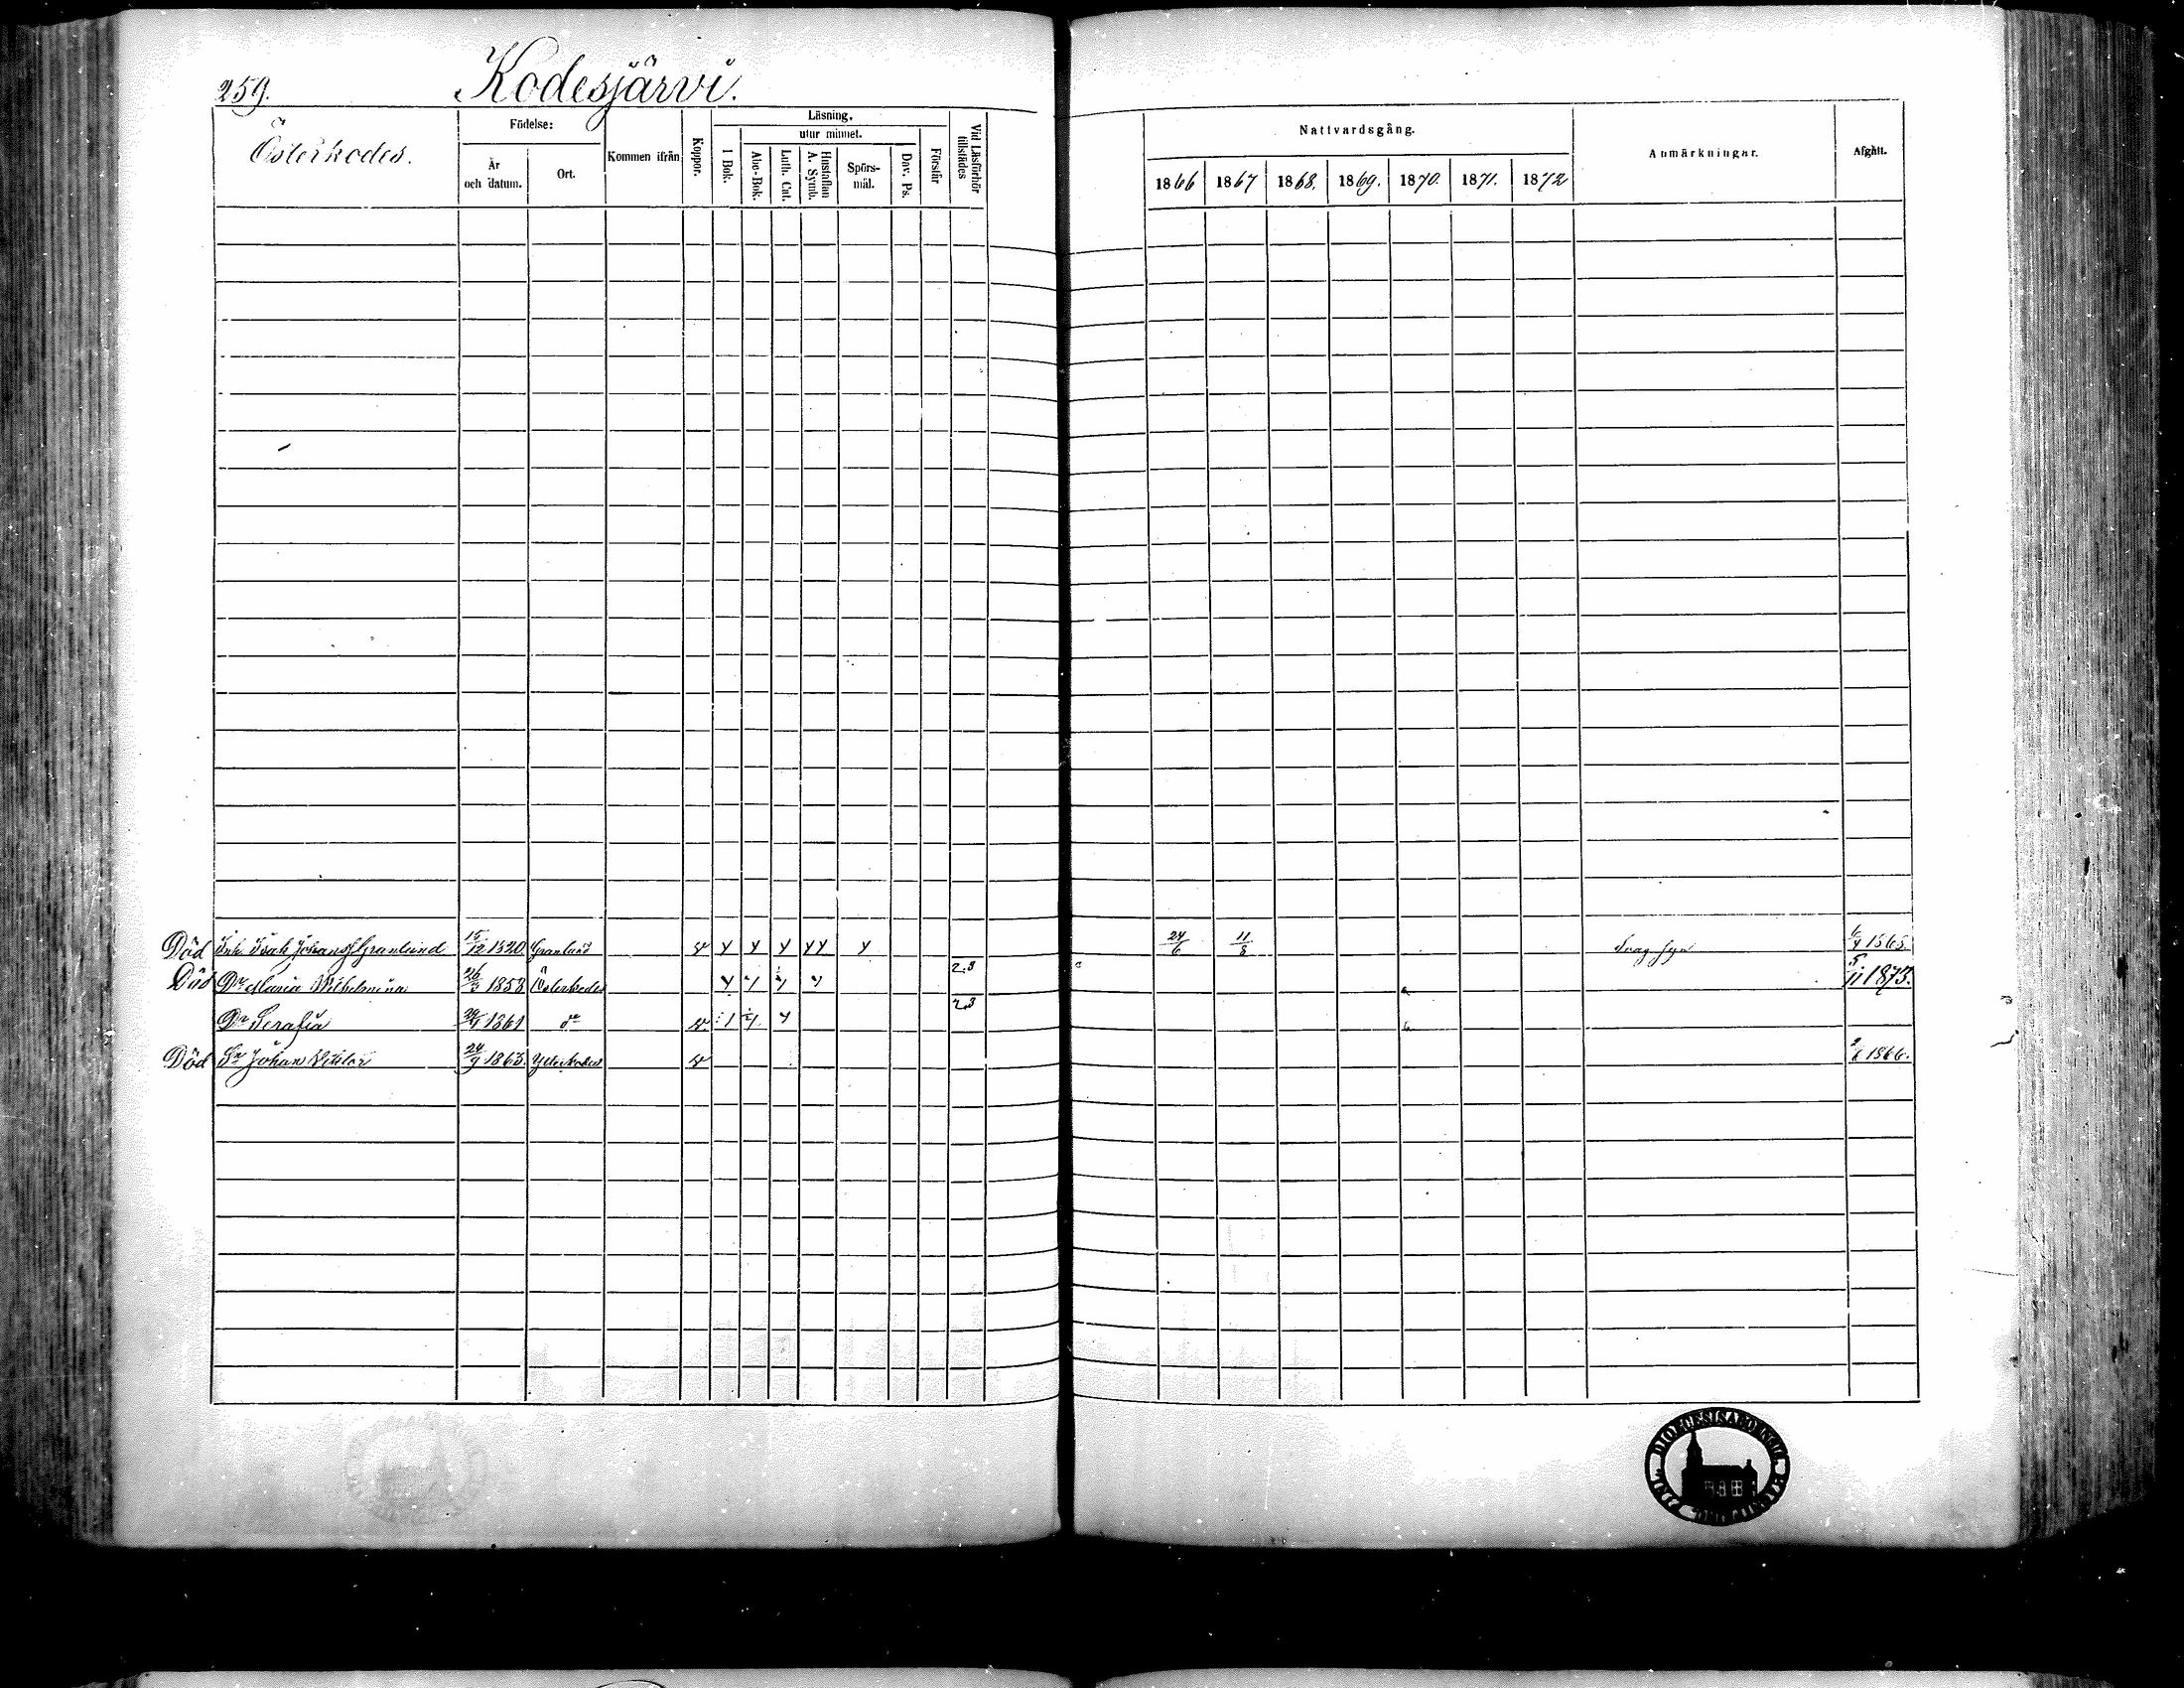 259. Kodesjärvi.
Österkodes.
Födelse:
År och datum.
Ort.
Kommen ifrån
Koppor.
Läsning.
I Bok.
utur minnet.
Abc-Bok.
Luth. Cat.
Hustaflan A. Symb.
Spörsmål.
Dav. Ps.
Förstår
Vid Läsförhör tillstädes
Nattvardsgång.
1866 1867 1868. 1869. 1870. 1871. 1872
Anmärkningar.
Afgått.
Död Inh. Isak Johanss Granlund 15/12 1820. Granlund v y y y y y y 24/6 11/8 Svag syn 6/4 1868.
Död Dr Maria Wilhelmina 26/3 1858 Österkodes y y y y 2.3 5/11 1873.
Dr Serafia 1861 do v y y 2.3
Död Sn Johan Viktor 24/9 1863. Ytterkodes v 1866.